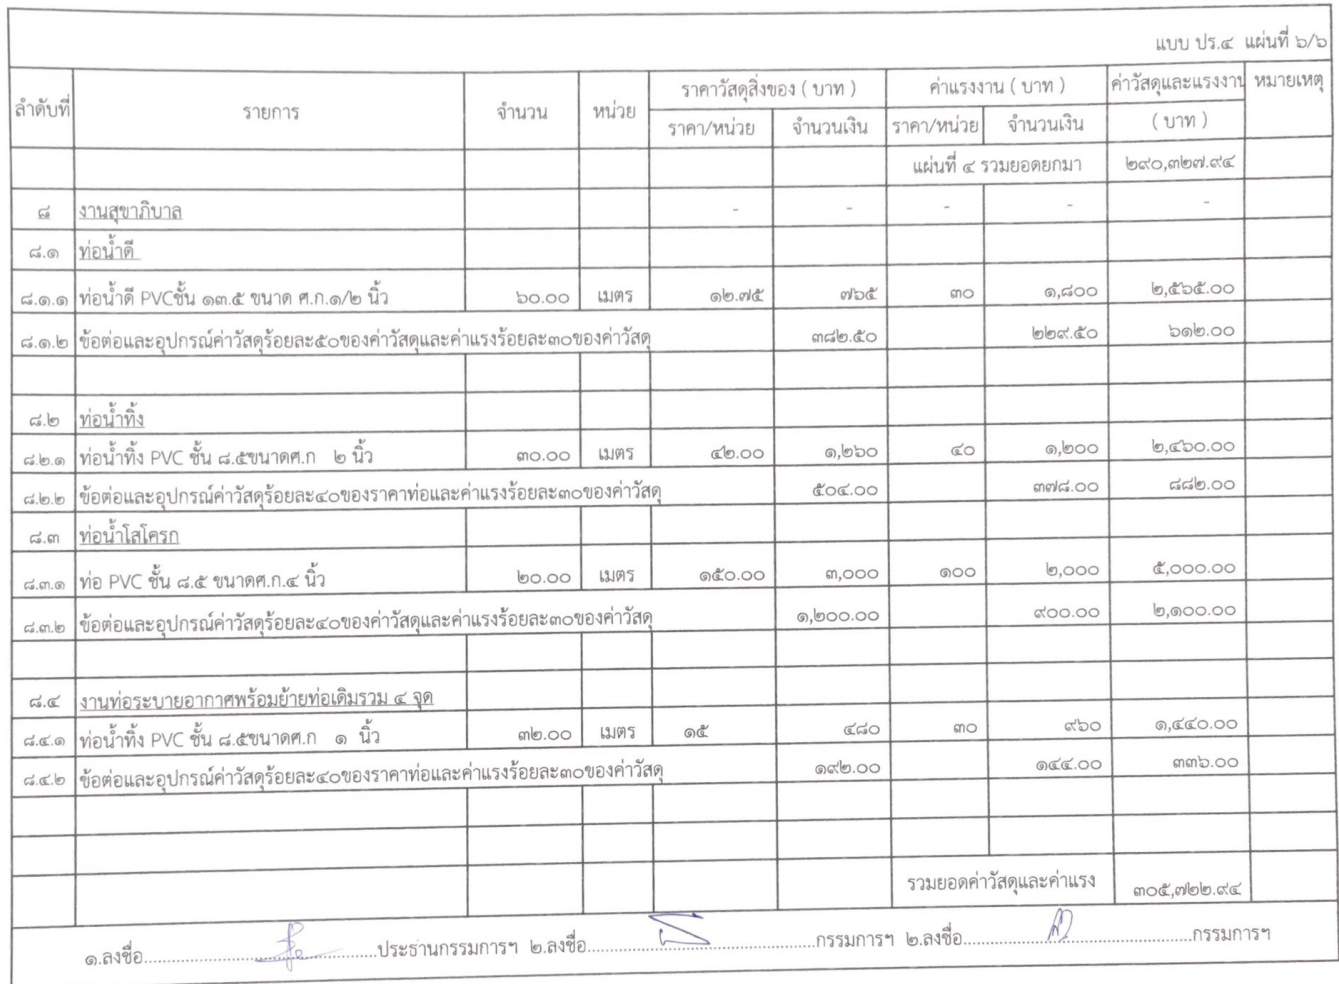 แบบ ปร.๔ แผ่นที่ ๖/๖
ลำดับที่ รายการ จำนวน หน่วย ราคาวัสดุสิ่งของ ( บาท ) ค่าแรงงาน ( บาท ) ค่าวัสดุและแรงงาน หมายเหตุ
ราคา/หน่วย จำนวนเงิน ราคา/หน่วย จำนวนเงิน ( บาท )
แผ่นที่ ๔ รวมยอดยกมา ๒๙๐,๓๒๗.๙๔
๘ งานสุขาภิบาล - - - - -
๘.๑ ท่อน้ำดี
๘.๑.๑ ท่อน้ำดี PVCชั้น ๑๓.๕ ขนาด ศ.ก.๑/๒ นิ้ว ๖๐.๐๐ เมตร ๑๒.๗๕ ๗๖๕ ๓๐ ๑,๘๐๐ ๒,๕๖๕.๐๐
๘.๑.๒ ข้อต่อและอุปกรณ์ค่าวัสดุร้อยละ๕๐ของค่าวัสดุและค่าแรงร้อยละ๓๐ของค่าวัสดุ ๓๘๒.๕๐ ๒๒๙.๕๐ ๖๑๒.๐๐
๘.๒ ท่อน้ำทิ้ง
๘.๒.๑ ท่อน้ำทิ้ง PVC ชั้น ๘.๕ขนาดศ.ก ๒ นิ้ว ๓๐.๐๐ เมตร ๔๒.๐๐ ๑,๒๖๐ ๔๐ ๑,๒๐๐ ๒,๔๖๐.๐๐
๘.๒.๒ ข้อต่อและอุปกรณ์ค่าวัสดุร้อยละ๔๐ของราคาท่อและค่าแรงร้อยละ๓๐ของค่าวัสดุ ๕๐๔.๐๐ ๓๗๘.๐๐ ๘๘๒.๐๐
๘.๓ ท่อน้ำโสโครก
๘.๓.๑ ท่อ PVC ชั้น ๘.๕ ขนาดศ.ก.๔ นิ้ว ๒๐.๐๐ เมตร ๑๕๐.๐๐ ๓,๐๐๐ ๑๐๐ ๒,๐๐๐ ๕,๐๐๐.๐๐
๘.๓.๒ ข้อต่อและอุปกรณ์ค่าวัสดุร้อยละ๔๐ของค่าวัสดุและค่าแรงร้อยละ๓๐ของค่าวัสดุ ๑,๒๐๐.๐๐ ๙๐๐.๐๐ ๒,๑๐๐.๐๐
๘.๔ งานท่อระบายอากาศพร้อมย้ายท่อเดิมรวม ๔ จุด
๘.๔.๑ ท่อน้ำทิ้ง PVC ชั้น ๘.๕ขนาดศ.ก ๑ นิ้ว ๓๒.๐๐ เมตร ๑๕ ๔๘๐ ๓๐ ๙๖๐ ๑,๔๔๐.๐๐
๘.๔.๒ ข้อต่อและอุปกรณ์ค่าวัสดุร้อยละ๔๐ของราคาท่อและค่าแรงร้อยละ๓๐ของค่าวัสดุ ๑๙๒.๐๐ ๑๔๔.๐๐ ๓๓๖.๐๐
รวมยอดค่าวัสดุและค่าแรง ๓๐๕,๗๒๒.๙๔
๑.ลงชื่อ....................ประธานกรรมการฯ ๒.ลงชื่อ....................กรรมการฯ ๒.ลงชื่อ....................กรรมการฯ